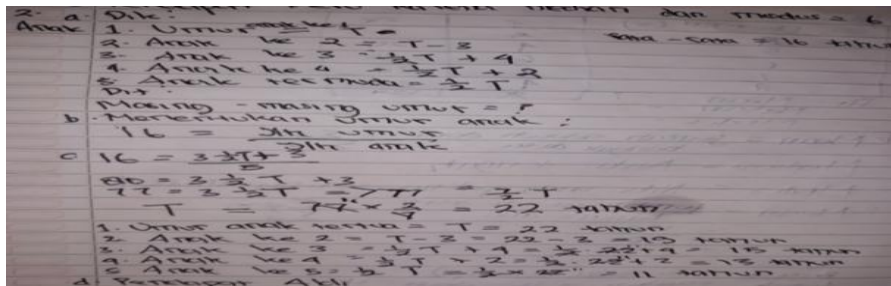 2. a. Dik :
dan modus = 6
Anak 1. Umur anak ke 1 = T
Rata - rata = 16 tahun
2. Anak ke 2 = T - 3
3. Anak ke 3 = ½T + 4
4. Anak ke 4 = ½T + 2
5. Anak termuda = ½ T
Dit :
Masing - masing umur = ?
b. Menentukan umur anak :
16 = Jlh umur
Jlh anak
c 16 = 3 ½T + 3
5
80 = 3 ½ T + 3
77 = 3 ½ T = 77 = 7/2 T
T = 77 x 2/7 = 22 tahun
1. Umur anak tertua = T = 22 tahun
2. Anak ke 2 = T - 3 = 22 - 3 = 19 tahun
3. Anak ke 3 = ½T + 4 = ½ . 22 + 4 = 15 tahun
4. Anak ke 4 = ½T + 2 = ½ . 22 + 2 = 13 tahun
5 Anak ke 5 = ½ T = ½ x 22 = 11 tahun
d.